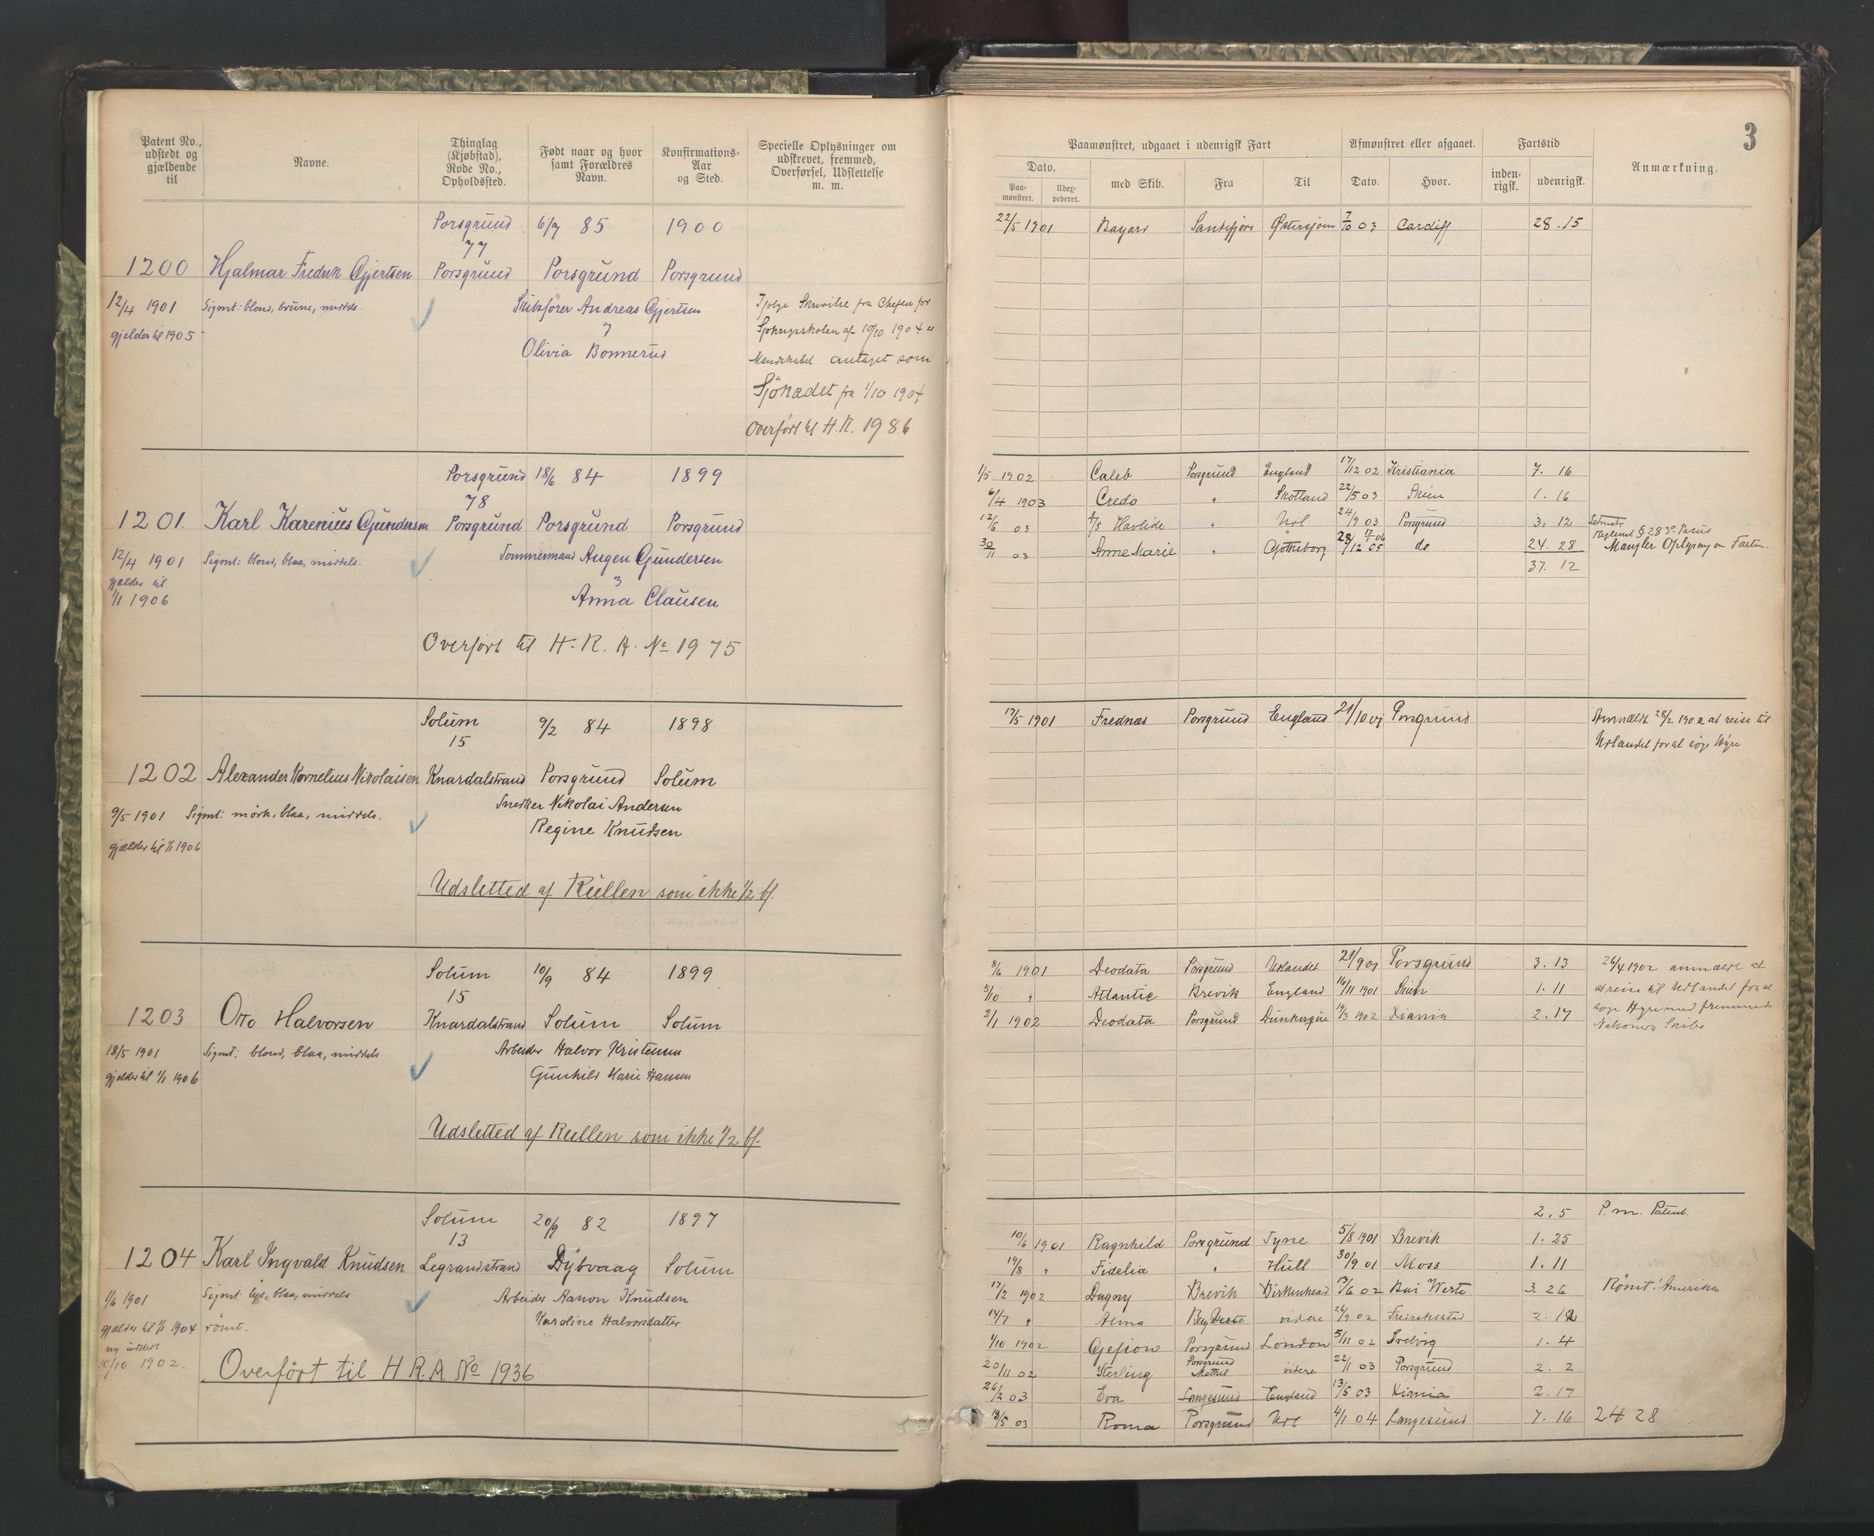 3
Patent No., udstedt og gjældende til
Navne.
Thinglag (Kjøbstad), Rode No., Opholdssted.
Født naar og hvor samt Forældres Navn.
Konfirmations-Aar og Sted.
Specielle Oplysninger om udskrevet, fremmed, Overførsel, Udslettelse m. m.
Paamønstret, udgaaet i udenrigsk Fart
Afmønstret eller afgaaet.
Fartstid
Anmærkning.
Dato.
Paa-mønstret.
med Skib.
Fra
Til
Dato.
Hvor.
inden-rigsk.
udenrigsk.
Porsgrund 6/7 85 1900
77
1200 Hjalmar Fredrik Gjertsen Porsgrund Porsgrund Porsgrund
12/4 1901 Signt: blond, brune, middels.
gjelder til 1905
Skibsfører Andreas Gjertsen
Olivia Bonnerud
Ifølge Skrivelse fra Chefen for
af 10/10 1904 er
Mandskabet antaget som
Sjökadet fra 1/10 1904
Overført til H.R. 1986
22/5 1901 Bayard Sandefjord Østersjøen 7/10 03 Cardiff 28.15
Porsgrund 18/6 84 1899
78
1201. Karl Karenius Gundersen Porsgrund Porsgrund Porsgrund
12/4 1901 Signt: blond, blaa, middels.
gjælder til
1/1 1906
Tømmermand Augen Gundersen
Anna Clausen
Overført til H.R.A. No 1975
1/5 1902 Caleb Porsgrund England 17/12 02 Kristiania 7. 16
6/4 1903 Credo " Skotland 22/5 03 Skien 1. 16
12/6 03 Havlide " Udl 24/9 03 Porsgrund 3. 12
30/11 03 Anne Marie " Gøteborg 28/12 05 do 24. 28 Mangler Oplysng om Farten
37. 12
Solum 9/2 84 1898
15
1202 Alexander Kornelius Nikolaisen Knardalstrand Porsgrund Solum
9/5 1901 Signt: mørk, blaa, middels.
gjælder til 1/1 1906
Snedker Nikolai Andersen
Regine Knudsen
Udslettet af Rullen som ikke 1/2 bf.
17/5 1901 Frednæs Porsgrund England 21/10 01 Porsgrund
Anmeldt 28/2 1902 at reise til
Udlandet for at søge Hyre
Solum 10/9 84 1899
15
1203 Otto Halvorsen Knardalstrand Solum Solum
18/5 1901 Signt: blond, blaa, middels
gjelder til 1/1 1906
Arbeider Halvor Kristensen
Gunhild Marie Hansen
Udsletted af Rullen som ikke 1/2 bf.
8/6 1901 Deodata Porsgrund Udlandet 21/9 01 Porsgrund 3. 13
5/10 " Atlantic Brevik England 16/11 1901 Skien 1. 11
2/1 1902 Deodata Porsgrund Dunkerque 19/3 1902 Xiania 2. 17
26/4 1902 anmeldt at
at reise til Udlandet for at
søge Hyre med fremmede
Nationers Skibe
Solum 20/9 82 1897
13
1204 Karl Ingvald Knudsen Legrandstrand Dybvaag Solum
1/6 1901 Signt: lys, blaa, middels
gjælder til 1/1 1904 rømt.
ny utstedt
10/10 1902.
Arbeider Aanon Knudsen
Karoline Halvorsdatter
Overført til H R A No 1936
2. 5 P.m. Patent.
10/6 1901 Ragnhild Porsgrund Tyne 5/8 1901 Brevik 1. 25
19/8 " Fidelia " Hull 30/9 01 Moss 1. 11
17/2 1902 Dagny Brevik Birkenhead 13/6 02 Bai Verte 3. 26 Rømt i Amerika
14/7 " Alma videre 26/9 02 Fredrikstad 2. 12
1/10 1902 Gefion Porsgrund London 5/11 02 Svelvig 1. 4
20/11 02 Sterling Porsgrund videre 22/1 03 Porsgrund 2. 2
26/2 03 Eva Langesund England 13/5 03 Xiania 2. 17
18/5 03 Roma Porsgrund Udl 4/1 04 Langesund 7. 16 24 28